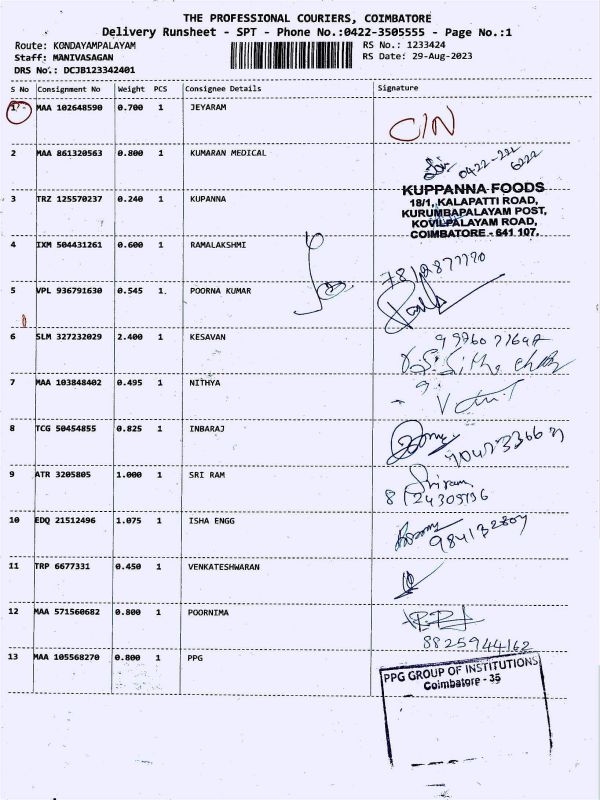 THE PROFESSIONAL COURIERS, COIMBATORE
Delivery Runsheet - SPT - Phone No.:0422-3505555 - Page No.:1
Route: KONDAYAMPALAYAM
RS No.: 1233424
Staff: MANIVASAGAN
RS Date: 29-Aug-2023
DRS No.: DCJB123342401
S No Consignment No Weight PCS Consignee Details Signature
1 MAA 102648590 0.700 1 JEYARAM
C/N
2 MAA 861320563 0.800 1 KUMARAN MEDICAL
0422-222
6222
3 TRZ 125570237 0.240 1 KUPANNA
KUPPANNA FOODS
18/1, KALAPATTI ROAD,
KURUMBAPALAYAM POST,
KOVILPALAYAM ROAD,
COIMBATORE - 641 107.
4 IXM 504431261 0.600 1 RAMALAKSHMI
5 VPL 936791630 0.545 1 POORNA KUMAR
6 SLM 327232029 2.400 1 KESAVAN
7 MAA 103848402 0.495 1 NITHYA
8 TCG 50454855 0.825 1 INBARAJ
9 ATR 3205805 1.000 1 SRI RAM
Sriram
10 EDQ 21512496 1.075 1 ISHA ENGG
11 TRP 6677331 0.450 1 VENKATESHWARAN
12 MAA 571560682 0.800 1 POORNIMA
8825944162
13 MAA 105568270 0.800 1 PPG
PPG GROUP OF INSTITUTIONS
Coimbatore - 35